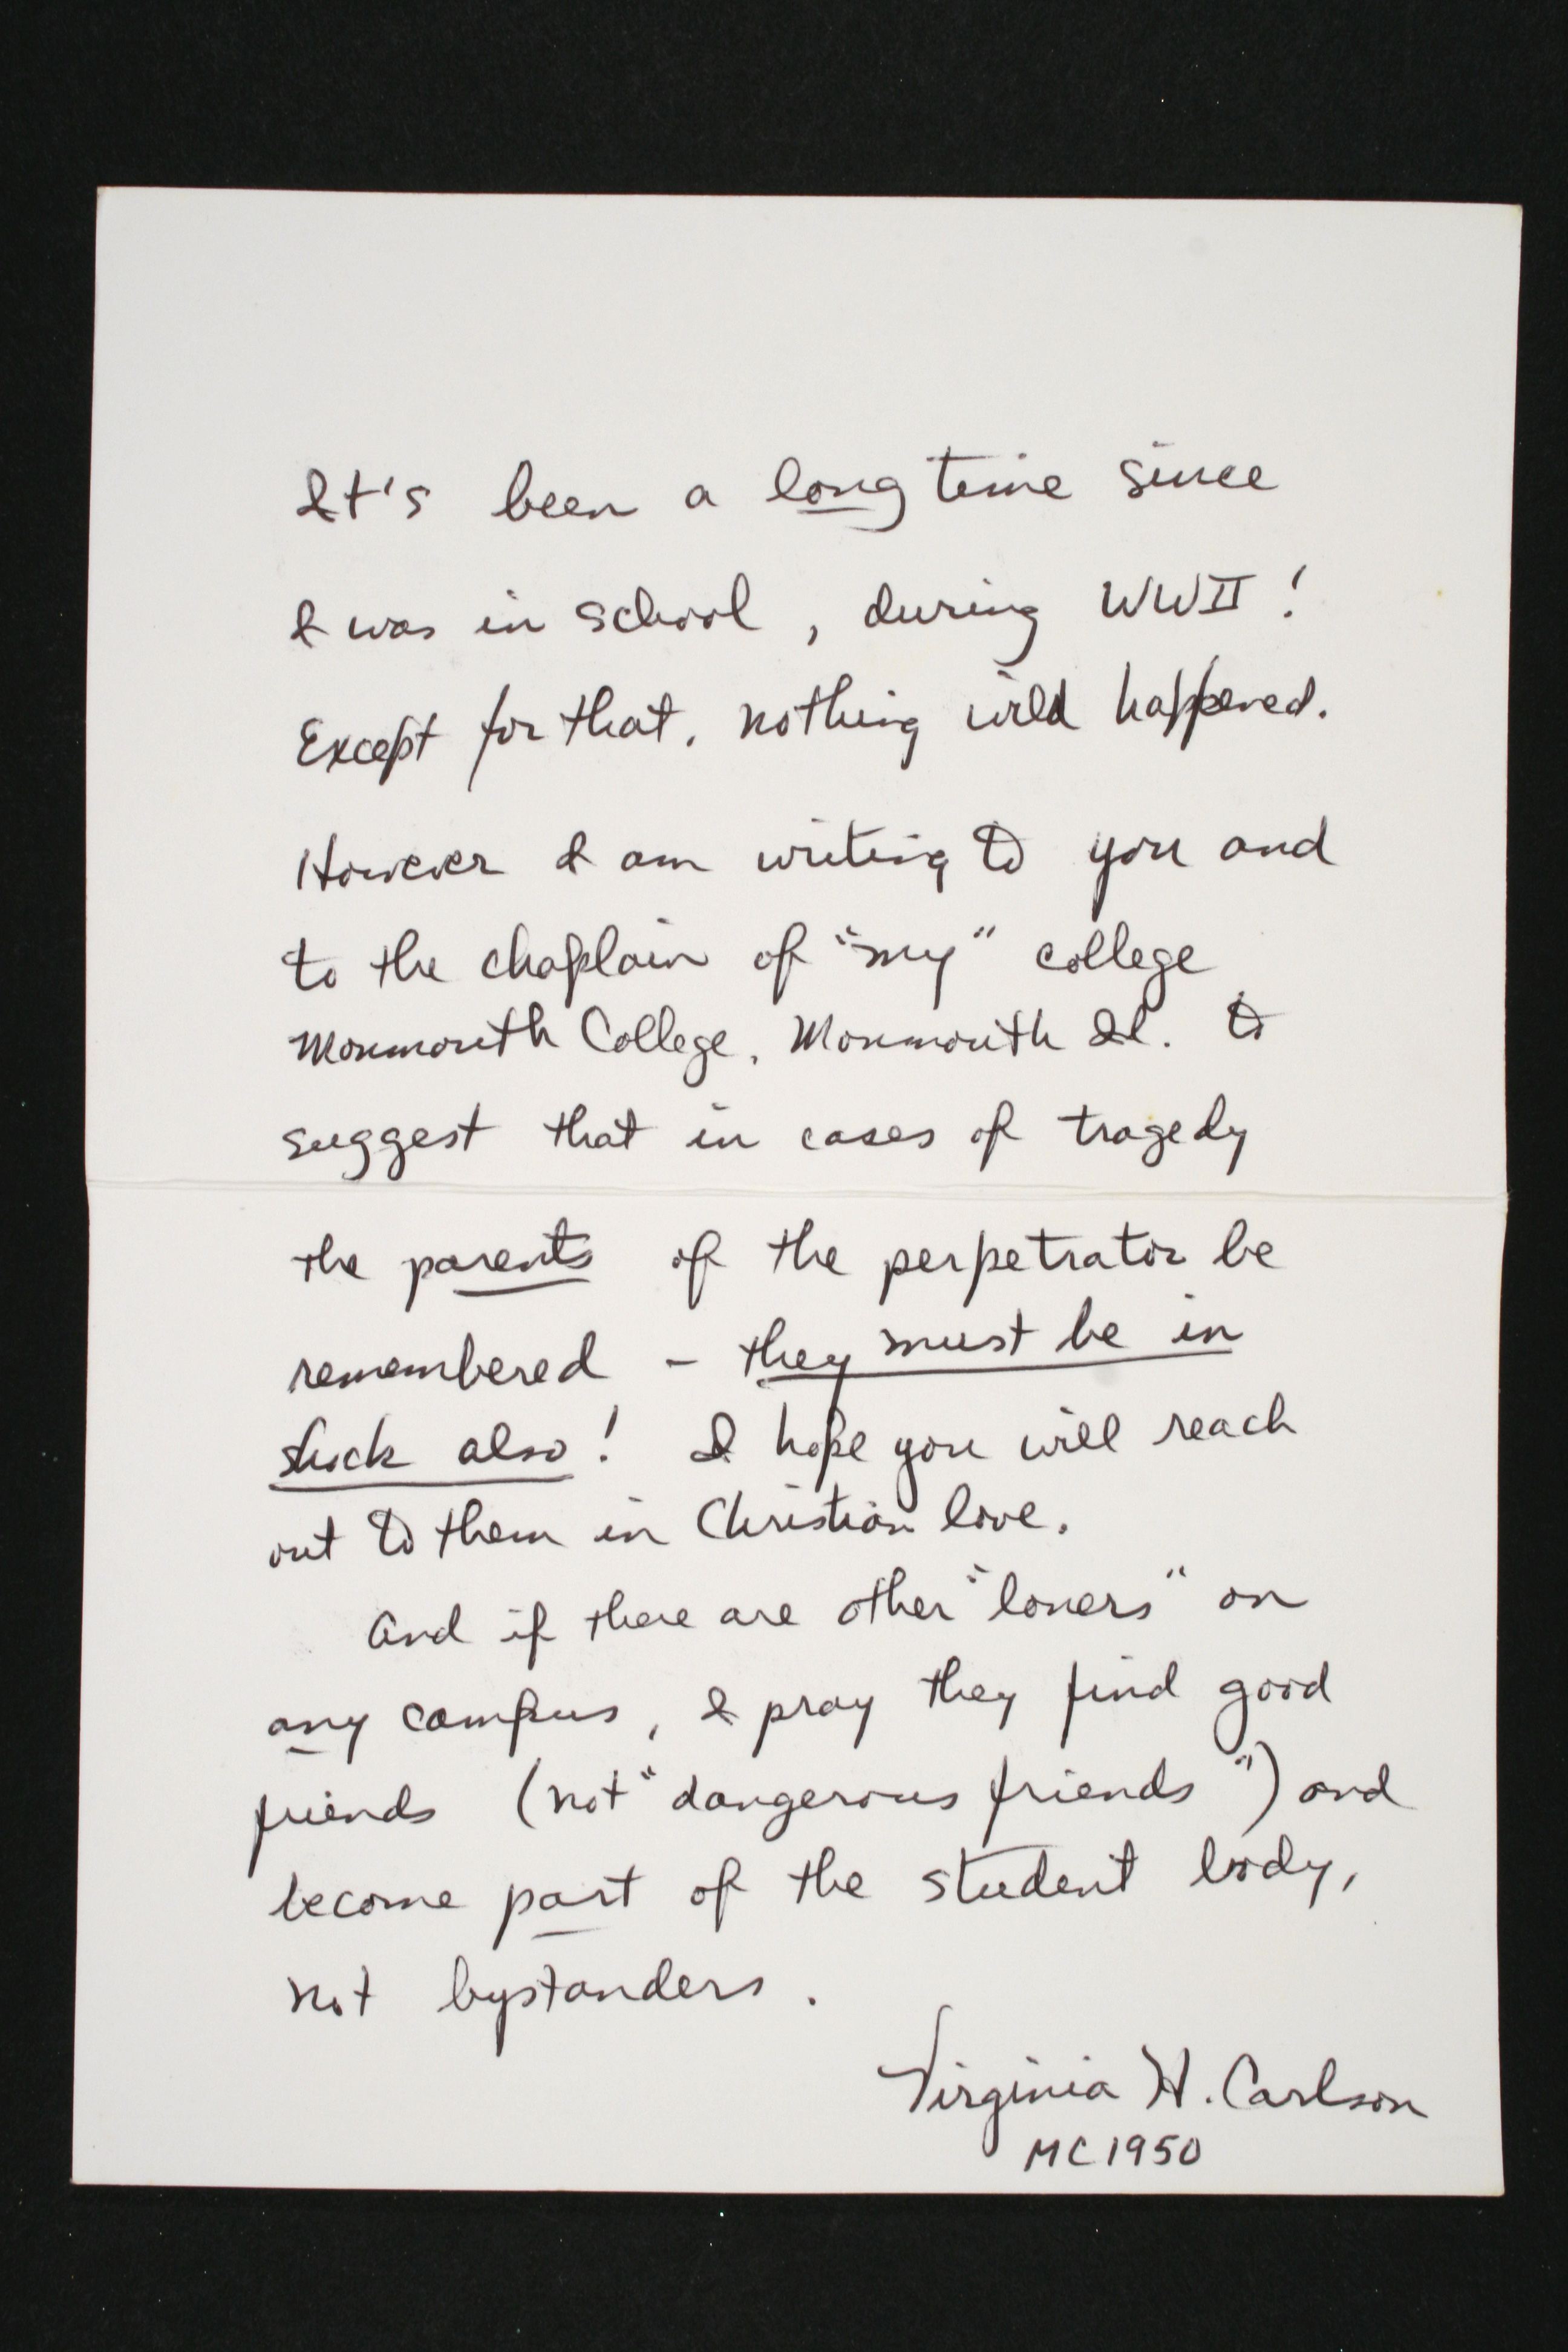 It's been a long time since
I was in school, during WWII!
Except for that, nothing wild happened.
However I am writing to you and
to the chaplain of "my" college
Monmouth College, Monmouth Il. to
suggest that in cases of tragedy
the parents of the perpetrator be
remembered – they must be in
shock also! I hope you will reach
out to them in Christian love.
And if there are other "loners" on
any campus, I pray they find good
friends (not "dangerous friends") and
become part of the student body,
not bystanders.
Virginia H. Carlson
MC 1950